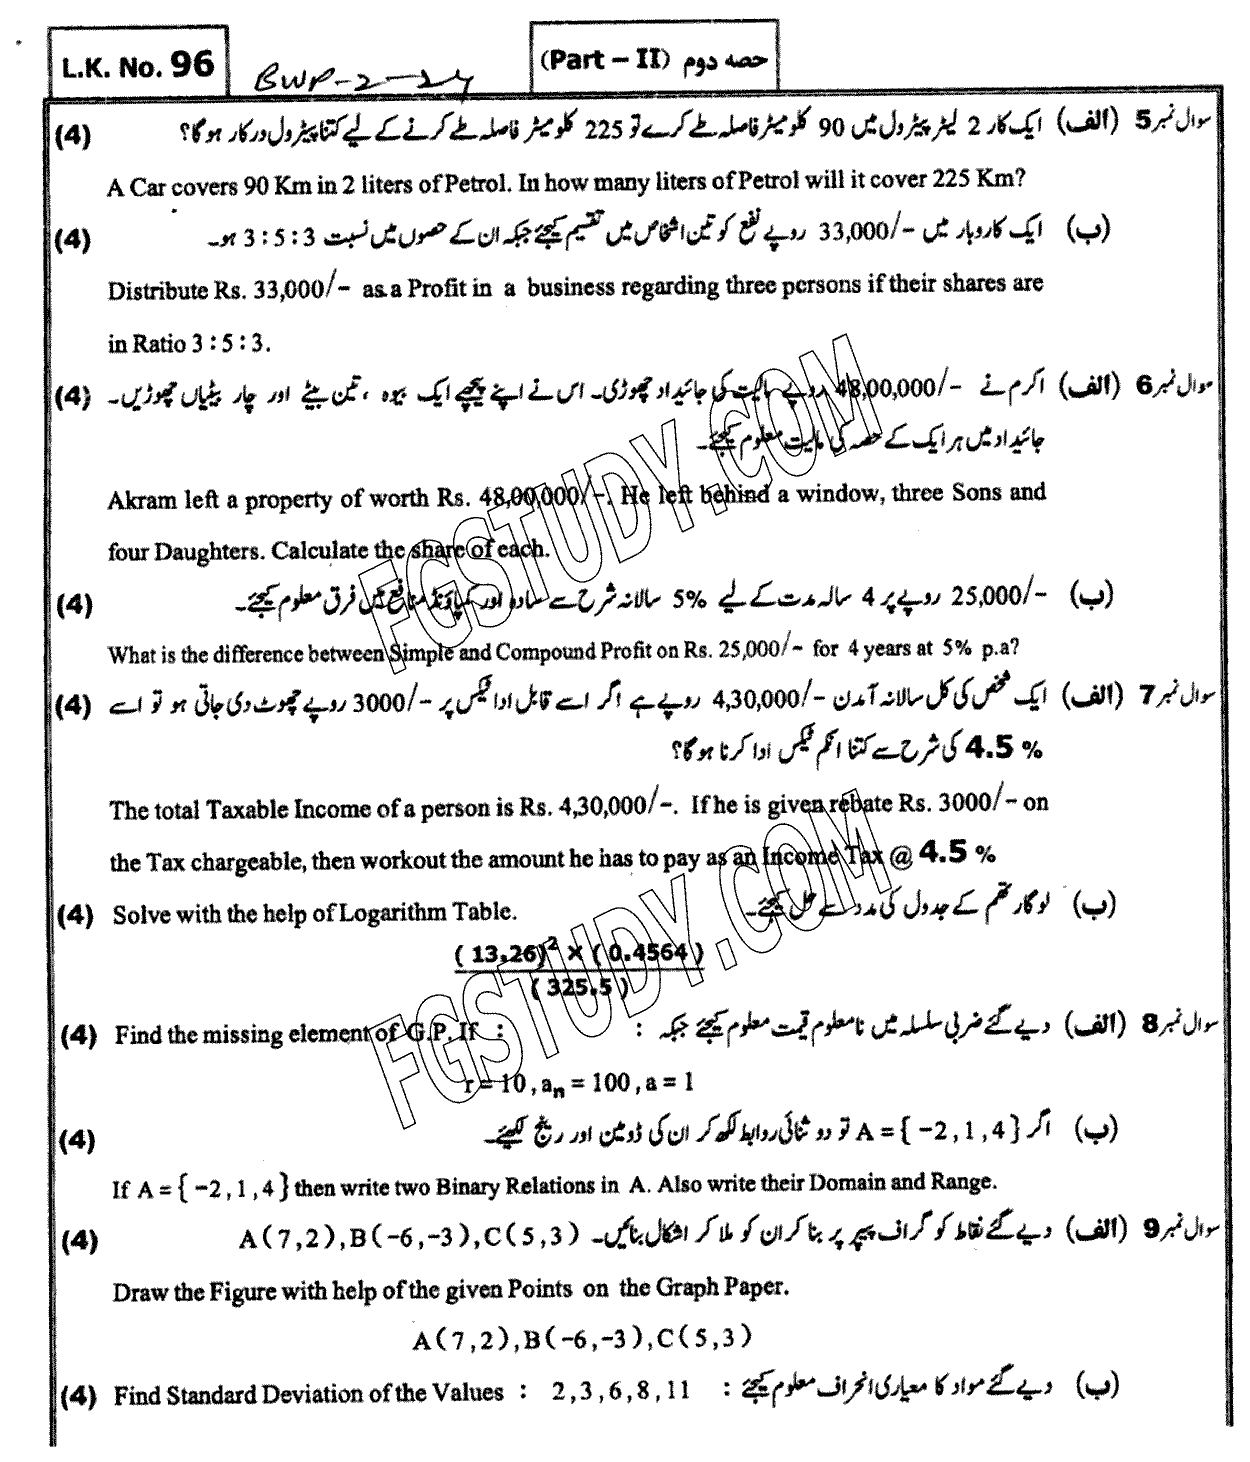 L.K. No. 96
BWP-2-24
(Part – II) حصہ دوم
سوال نمبر 5 (الف) ایک کار 2 لیٹر پیٹرول میں 90 کلومیٹر فاصلہ طے کرے تو 225 کلومیٹر فاصلہ طے کرنے کے لیے کتنا پیٹرول درکار ہوگا؟ (4)
A Car covers 90 Km in 2 liters of Petrol. In how many liters of Petrol will it cover 225 Km?
(ب) ایک کاروبار میں 33,000/- روپے نفع کو تین اشخاص میں تقسیم کیجئے جبکہ ان کے حصوں میں نسبت 3 : 5 : 3 ہو۔ (4)
Distribute Rs. 33,000/- as a Profit in a business regarding three persons if their shares are
in Ratio 3 : 5 : 3.
سوال نمبر 6 (الف) اکرم نے 48,00,000/- روپے مالیت کی جائیداد چھوڑی۔ اس نے اپنے پیچھے ایک بیوہ ، تین بیٹے اور چار بیٹیاں چھوڑیں۔ (4)
جائیداد میں ہر ایک کے حصہ کی مالیت معلوم کیجئے۔
Akram left a property of worth Rs. 48,00,000/-. He left behind a window, three Sons and
four Daughters. Calculate the share of each.
(ب) 25,000/- روپے پر 4 سالہ مدت کے لیے 5% سالانہ شرح سے سادہ اور کمپاؤنڈ منافع میں فرق معلوم کیجئے۔ (4)
What is the difference between Simple and Compound Profit on Rs. 25,000/- for 4 years at 5% p.a?
سوال نمبر 7 (الف) ایک شخص کی کل سالانہ آمدن 4,30,000/- روپے ہے اگر اسے قابل ادا ٹیکس پر 3000/- روپے چھوٹ دی جاتی ہو تو اسے (4)
4.5 % کی شرح سے کتنا انکم ٹیکس ادا کرنا ہوگا؟
The total Taxable Income of a person is Rs. 4,30,000/-. If he is given rebate Rs. 3000/- on
the Tax chargeable, then workout the amount he has to pay as an Income Tax @ 4.5 %
(4) Solve with the help of Logarithm Table. (ب) لوگارتھم کے جدول کی مدد سے حل کیجئے۔
( 13.26)² × ( 0.4564 )
( 325.5 )
(4) Find the missing element of G.P. If : سوال نمبر 8 (الف) دیے گئے ضربی سلسلہ میں نامعلوم قیمت معلوم کیجئے جبکہ :
r = 10 , aₙ = 100 , a = 1
(ب) اگر A = { -2 , 1 , 4 } تو دو ثنائی روابط لکھ کر ان کی ڈومین اور رینج لکھیئے۔ (4)
If A = { -2 , 1 , 4 } then write two Binary Relations in A. Also write their Domain and Range.
سوال نمبر 9 (الف) دیے گئے نقاط کو گراف پیپر پر بنا کر ان کو ملا کر اشکال بنائیں۔ A ( 7 , 2 ) , B ( -6 , -3 ) , C ( 5 , 3 ) (4)
Draw the Figure with help of the given Points on the Graph Paper.
A ( 7 , 2 ) , B ( -6 , -3 ) , C ( 5 , 3 )
(4) Find Standard Deviation of the Values : 2 , 3 , 6 , 8 , 11 : (ب) دیے گئے مواد کا معیاری انحراف معلوم کیجئے
FGSTUDY.COM
FGSTUDY.COM